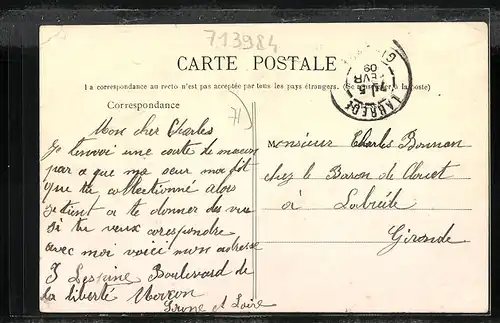 713984
CARTE POSTALE
La correspondance au recto n'est pas acceptée par tous les pays étrangers. (Se renseigner à la poste)
Correspondance
71
LABRÈDE
5
FEVR
09
Mon cher Charles
Je tenvoi une carte de macon
par ce que ma seur ma dit
que tu collectionné alors
je tient a te donner des vue
si tu veux corespondre
avec moi voici mon adresse
J Lespine Boulevard de
la liberté
Saone et Loire
Monsieur Charles
chez le Baron de
à Labrède
Gironde